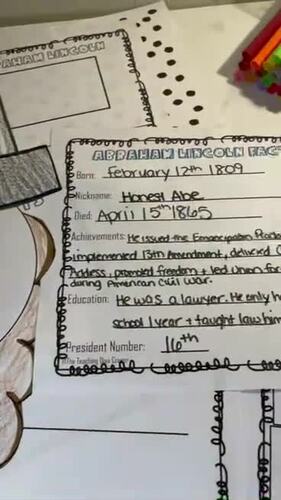 AHAM LINCOLN
ABRAHAM LINCOLN FAC
Born: February 12th 1809
Nickname: Honest Abe
Died: April 15th 1865
Achievements: He issued the Emancipation Procl
implemented 13th Amendment, delivered G
Address, promoted freedom + led Union for
during American Civil War.
Education: He was a lawyer. He only h
school 1 year + taught law him
President Number: 16th
The Teaching Dive Corner